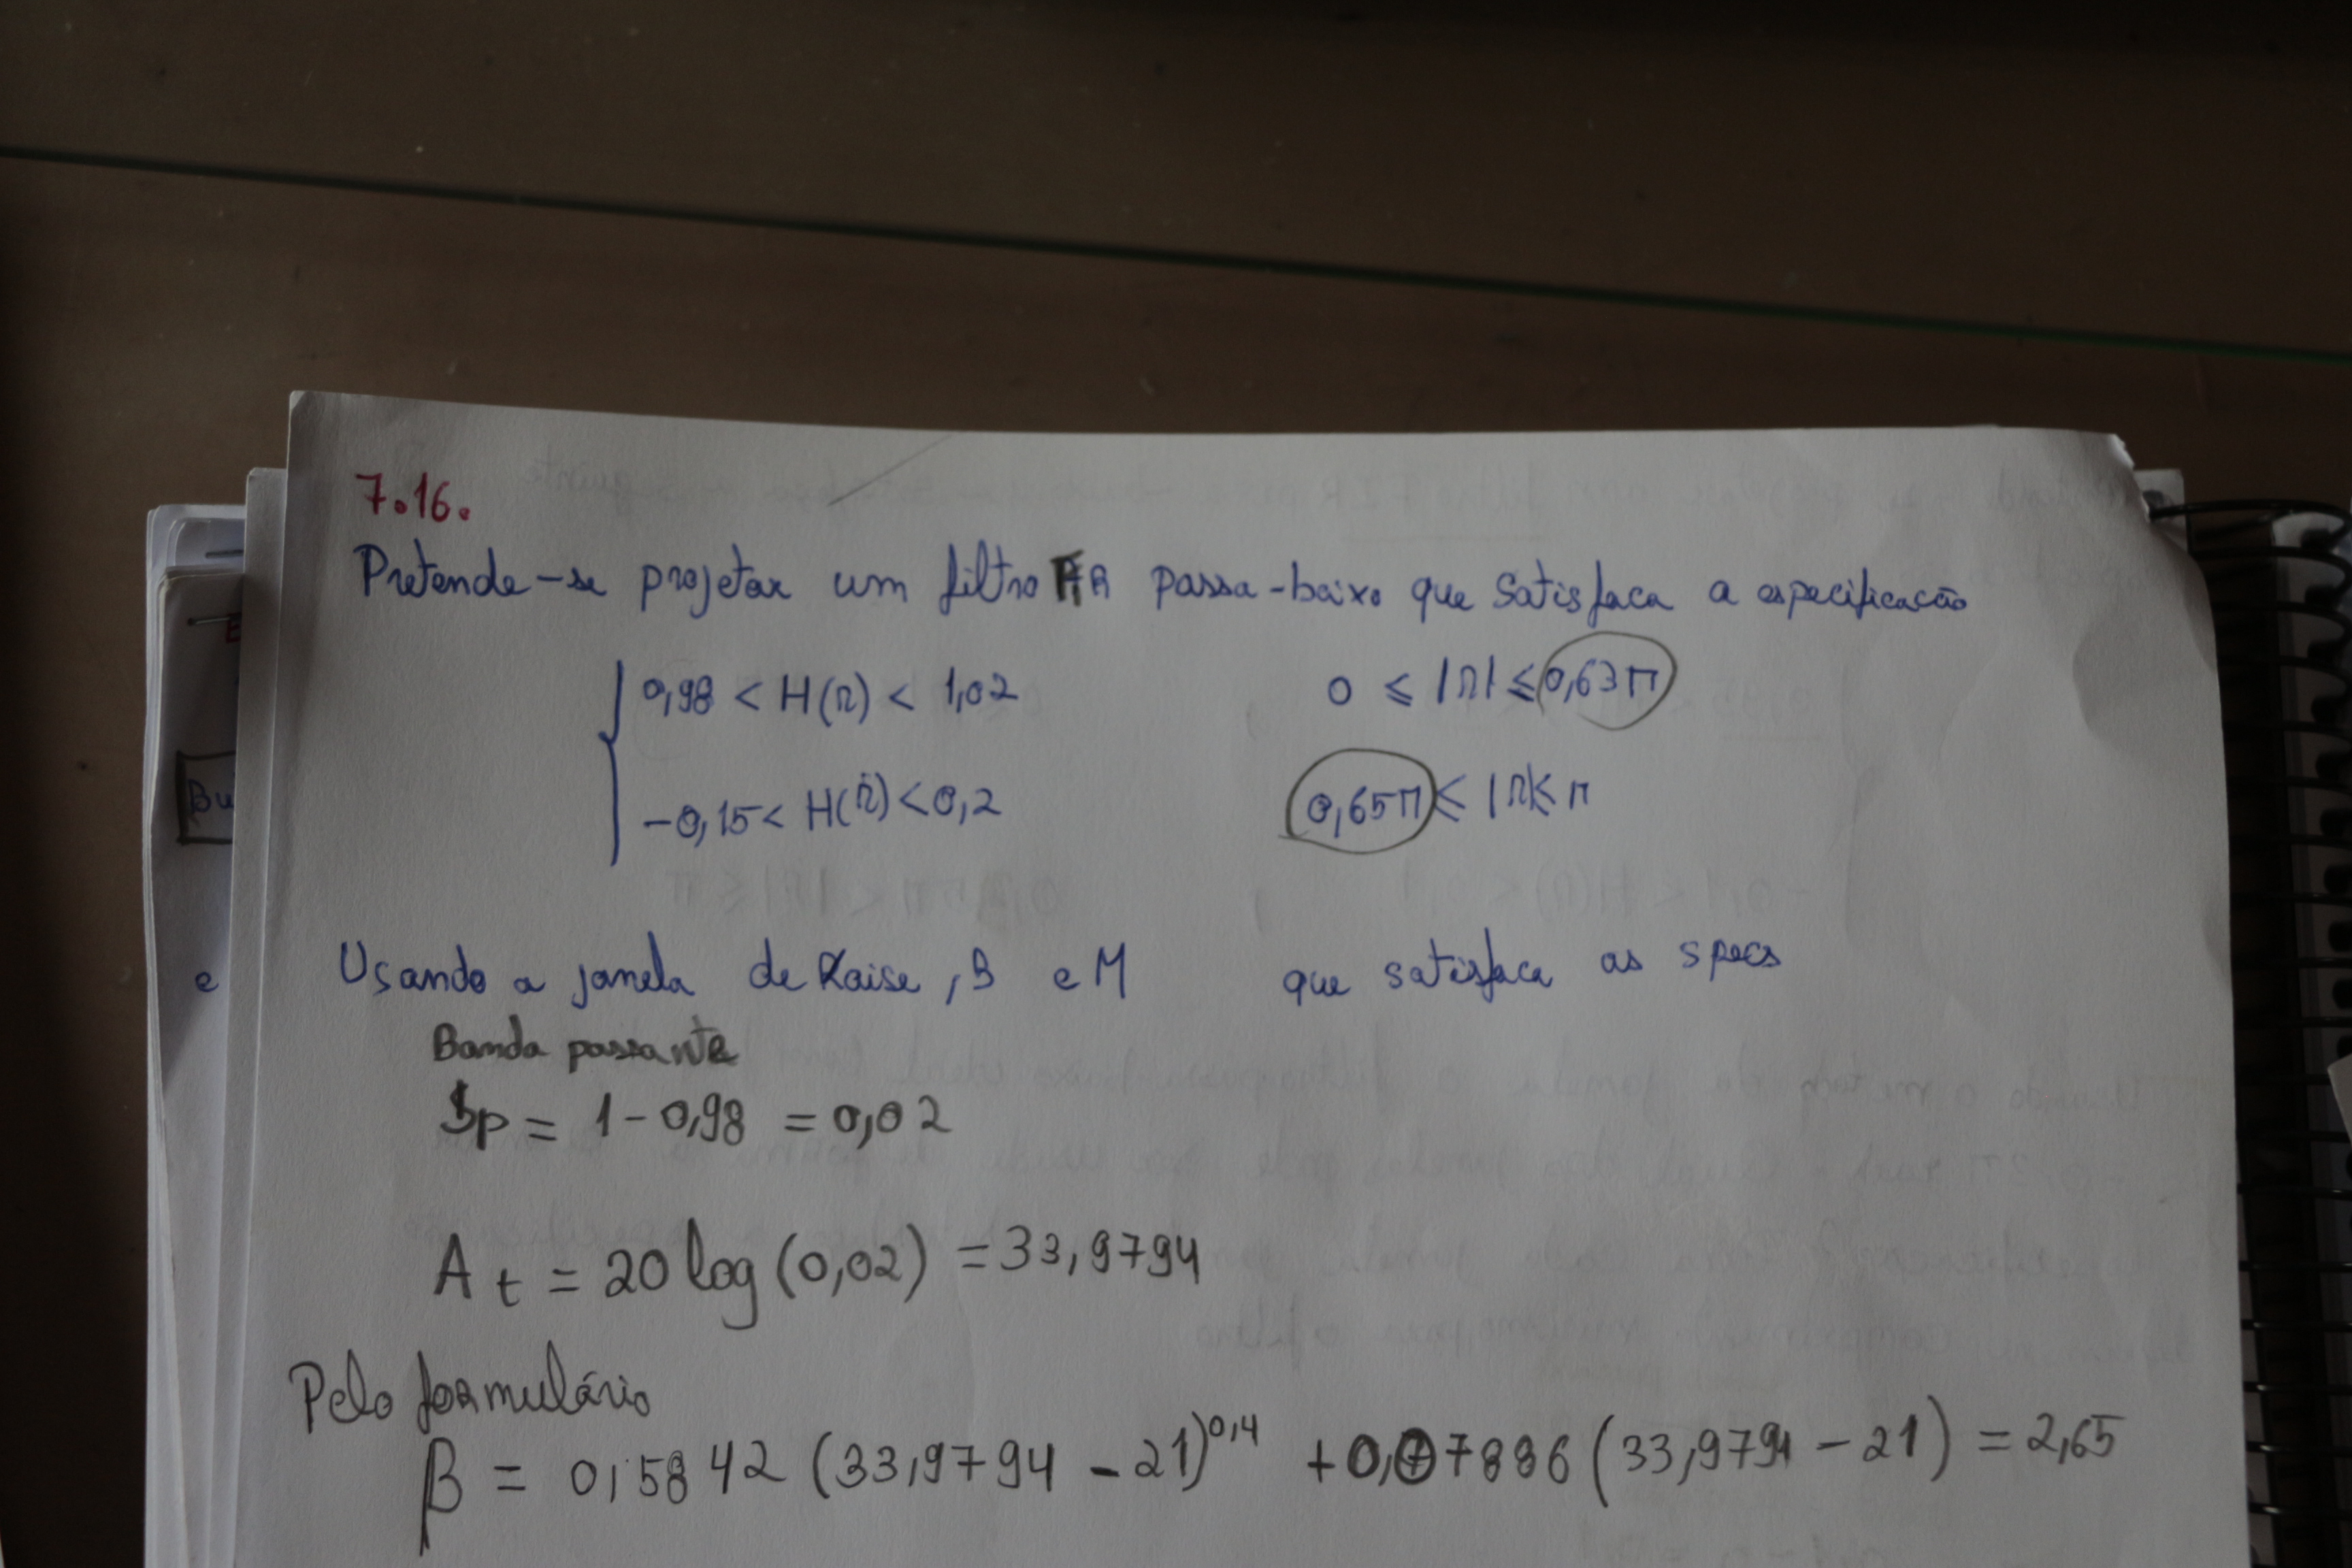 7.16.
Pretende-se projetar um filtro FIR passa-baixo que satisfaca a especificacão
0,98 < H(Ω) < 1,02 0 ≤ |Ω| ≤ 0,63π
-0,15 < H(Ω) < 0,2 0,65π ≤ |Ω| ≤ π
Usando a janela de Kaise, B e M que satisfaca as specs
Banda passante
δp = 1 - 0,98 = 0,02
At = 20 log (0,02) = 33,9794
Pelo formulário
β = 0,5842 (33,9794 - 21)^0,4 + 0,07886 (33,9794 - 21) = 2,65
Bu
e